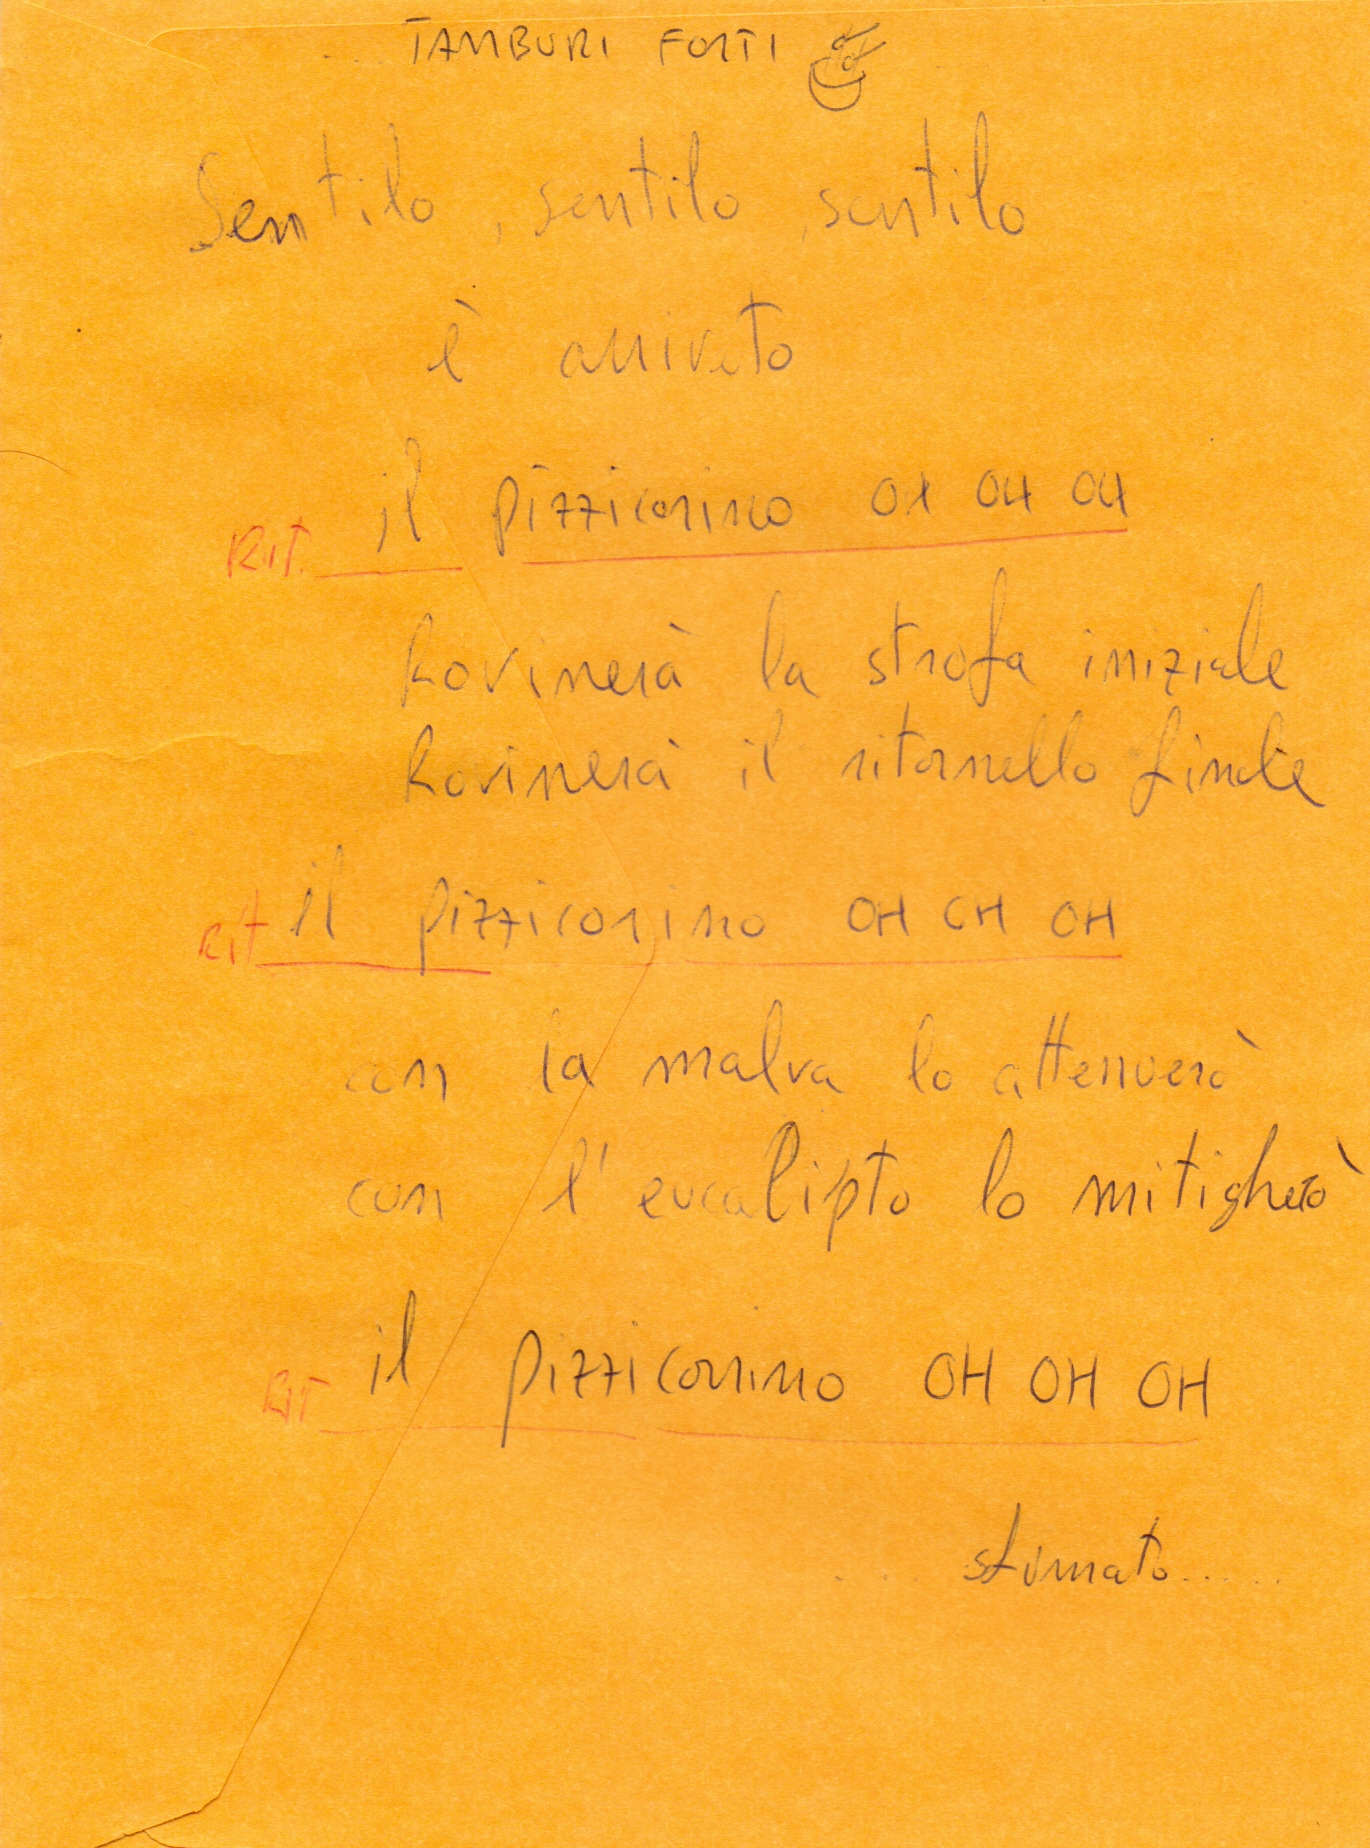 ... TAMBURI FORTI
Sentilo, sentilo, sentilo
è arrivato
Rit. il pizzicorino OH OH OH
Rovinerà la strofa iniziale
Rovinerà il ritornello finale
Rit il pizzicorino OH OH OH
con la malva lo attenuerò
con l'eucalipto lo mitigherò
Rit il pizzicorino OH OH OH
.... sfumato.....